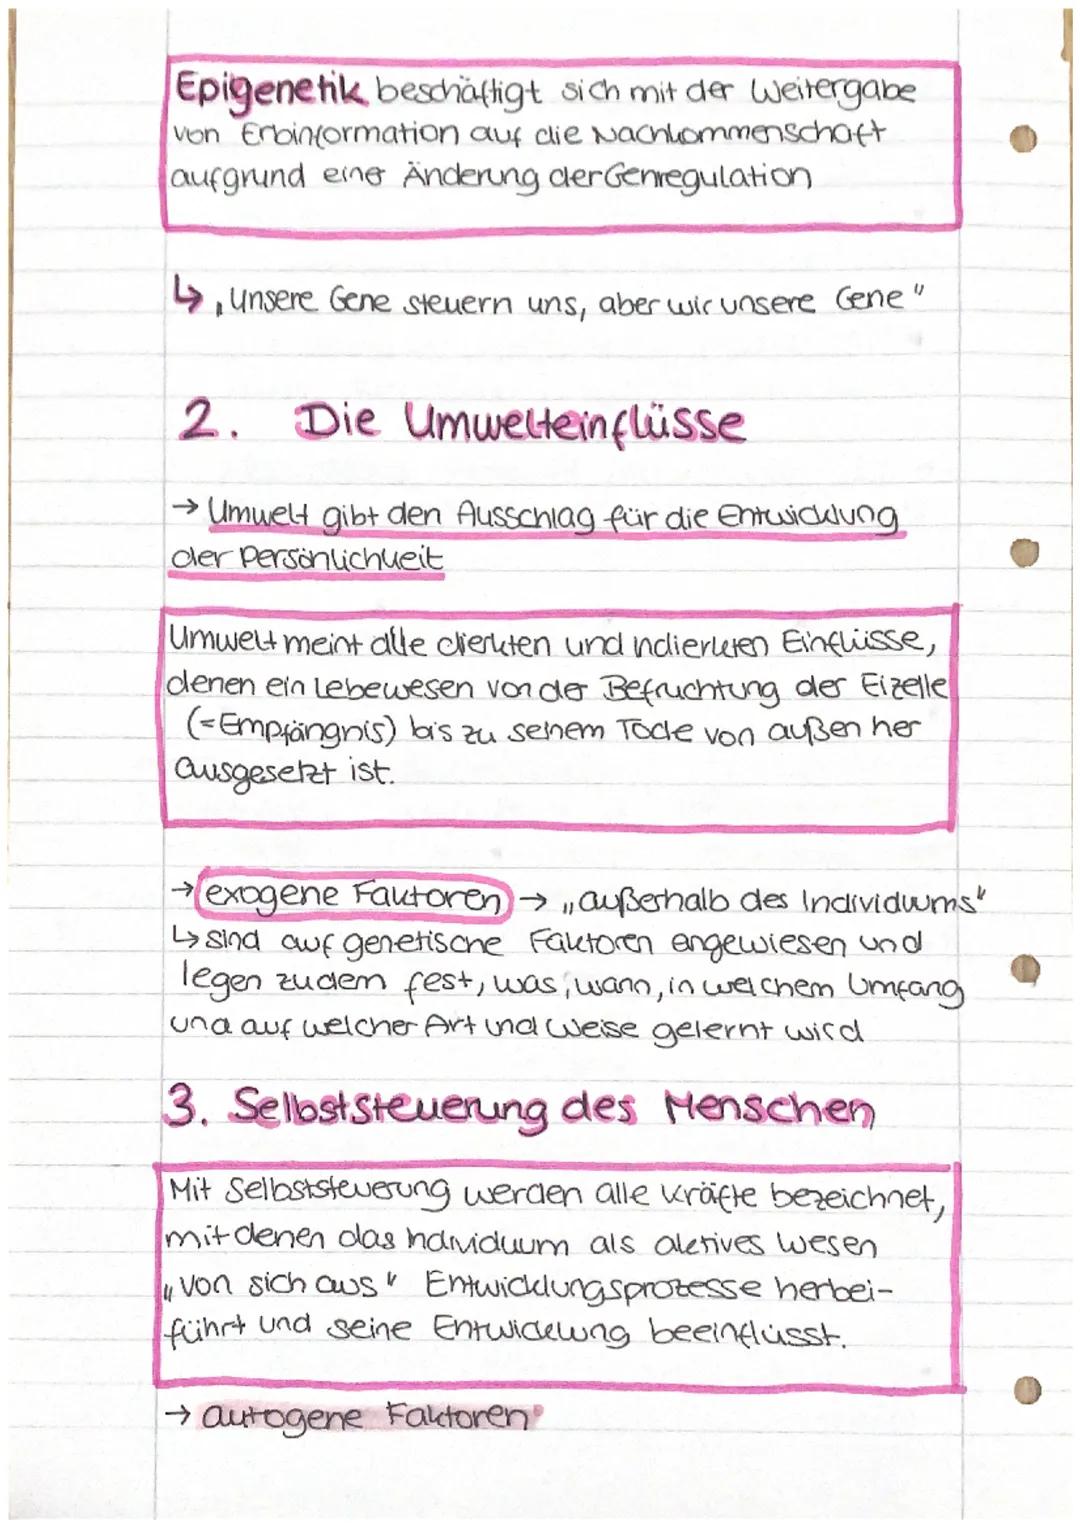 Epigenetik beschäftigt sich mit der Weitergabe
von Erbinformation auf die Nachkommenschaft
aufgrund einer Änderung der Genregulation
↳ „Unsere Gene steuern uns, aber wir unsere Gene"
2. Die Umwelteinflüsse
→ Umwelt gibt den Ausschlag für die Entwicklung
der Persönlichkeit
Umwelt meint alle direkten und indirekten Einflüsse,
denen ein Lebewesen von der Befruchtung der Eizelle
(=Empfängnis) bis zu seinem Tode von außen her
ausgesetzt ist.
→ exogene Faktoren → „außerhalb des Individuums"
↳ sind auf genetische Faktoren angewiesen und
legen zudem fest, was, wann, in welchem Umfang
und auf welcher Art und Weise gelernt wird
3. Selbststeuerung des Menschen
Mit Selbststeuerung werden alle Kräfte bezeichnet,
mit denen das Individuum als aktives Wesen
„von sich aus" Entwicklungsprozesse herbei-
führt und seine Entwicklung beeinflusst.
→ autogene Faktoren